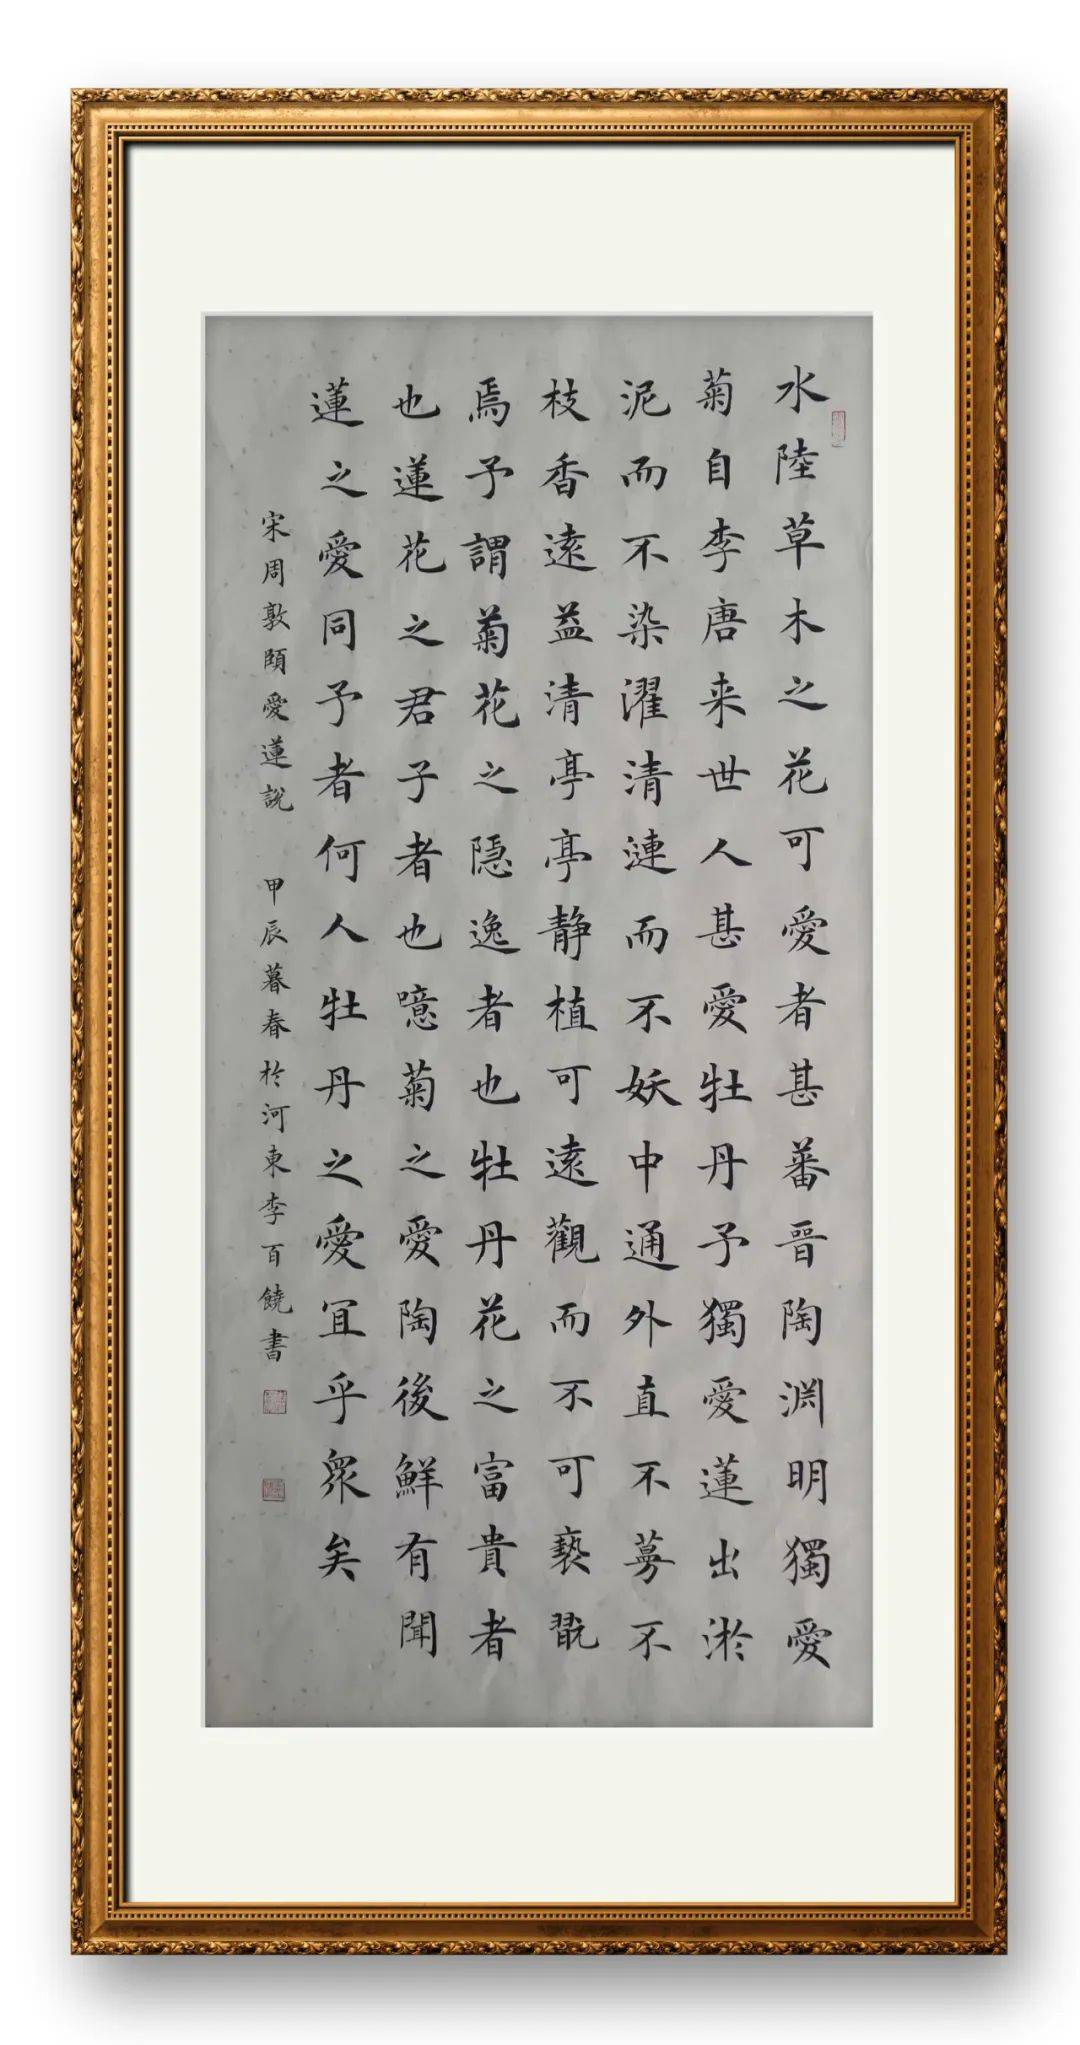 水陸草木之花可愛者甚蕃晋陶渊明獨愛
菊自李唐来世人甚愛牡丹予獨愛蓮出淤
泥而不染濯清漣而不妖中通外直不蔓不
枝香遠益清亭亭静植可遠觀而不可褻翫
焉予謂菊花之隱逸者也牡丹花之富貴者
也蓮花之君子者也噫菊之愛陶後鮮有聞
蓮之愛同予者何人牡丹之愛宜乎衆矣
宋周敦頤愛蓮說 甲辰暮春於河東李百饒書